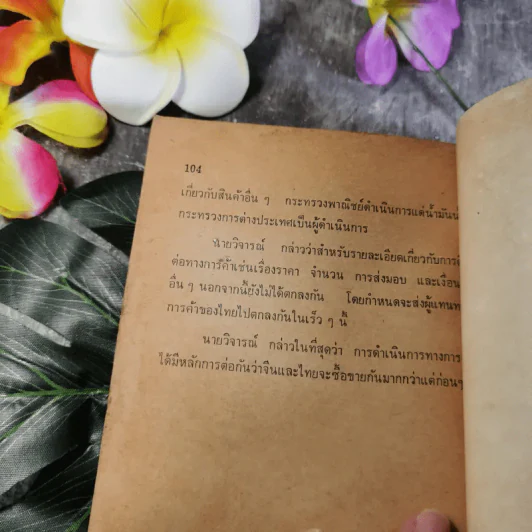 104
เกี่ยวกับสินค้าอื่น ๆ กระทรวงพาณิชย์ดำเนินการแต่น้ำมันน
กระทรวงการต่างประเทศเป็นผู้ดำเนินการ
นายวิจารณ์ กล่าวว่าสำหรับรายละเอียดเกี่ยวกับการ
ต่อทางการค้าเช่นเรื่องราคา จำนวน การส่งมอบ และเงื่อน
อื่น ๆ นอกจากนี้ยังไม่ได้ตกลงกัน โดยกำหนดจะส่งผู้แทนท
การค้าของไทยไปตกลงกันในเร็ว ๆ นี้
นายวิจารณ์ กล่าวในที่สุดว่า การดำเนินการทางการ
ได้มีหลักการต่อกันว่าจีนและไทยจะซื้อขายกันมากกว่าแต่ก่อนๆ